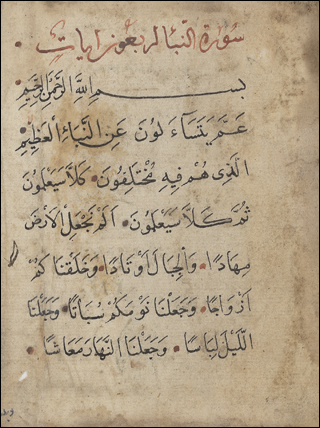 سورة النبأ اربعون ايات
بسم الله الرحمن الرحيم
عَمَّ يَتَسَاءَلُونَ عَنِ النَّبَإِ الْعَظِيمِ
الَّذِي هُمْ فِيهِ مُخْتَلِفُونَ كَلَّا سَيَعْلَمُونَ
ثُمَّ كَلَّا سَيَعْلَمُونَ اَلَمْ نَجْعَلِ الْاَرْضَ
مِهَادًا وَالْجِبَالَ اَوْتَادًا وَخَلَقْنَاكُمْ
اَزْوَاجًا وَجَعَلْنَا نَوْمَكُمْ سُبَاتًا وَجَعَلْنَا
اللَّيْلَ لِبَاسًا وَجَعَلْنَا النَّهَارَ مَعَاشًا